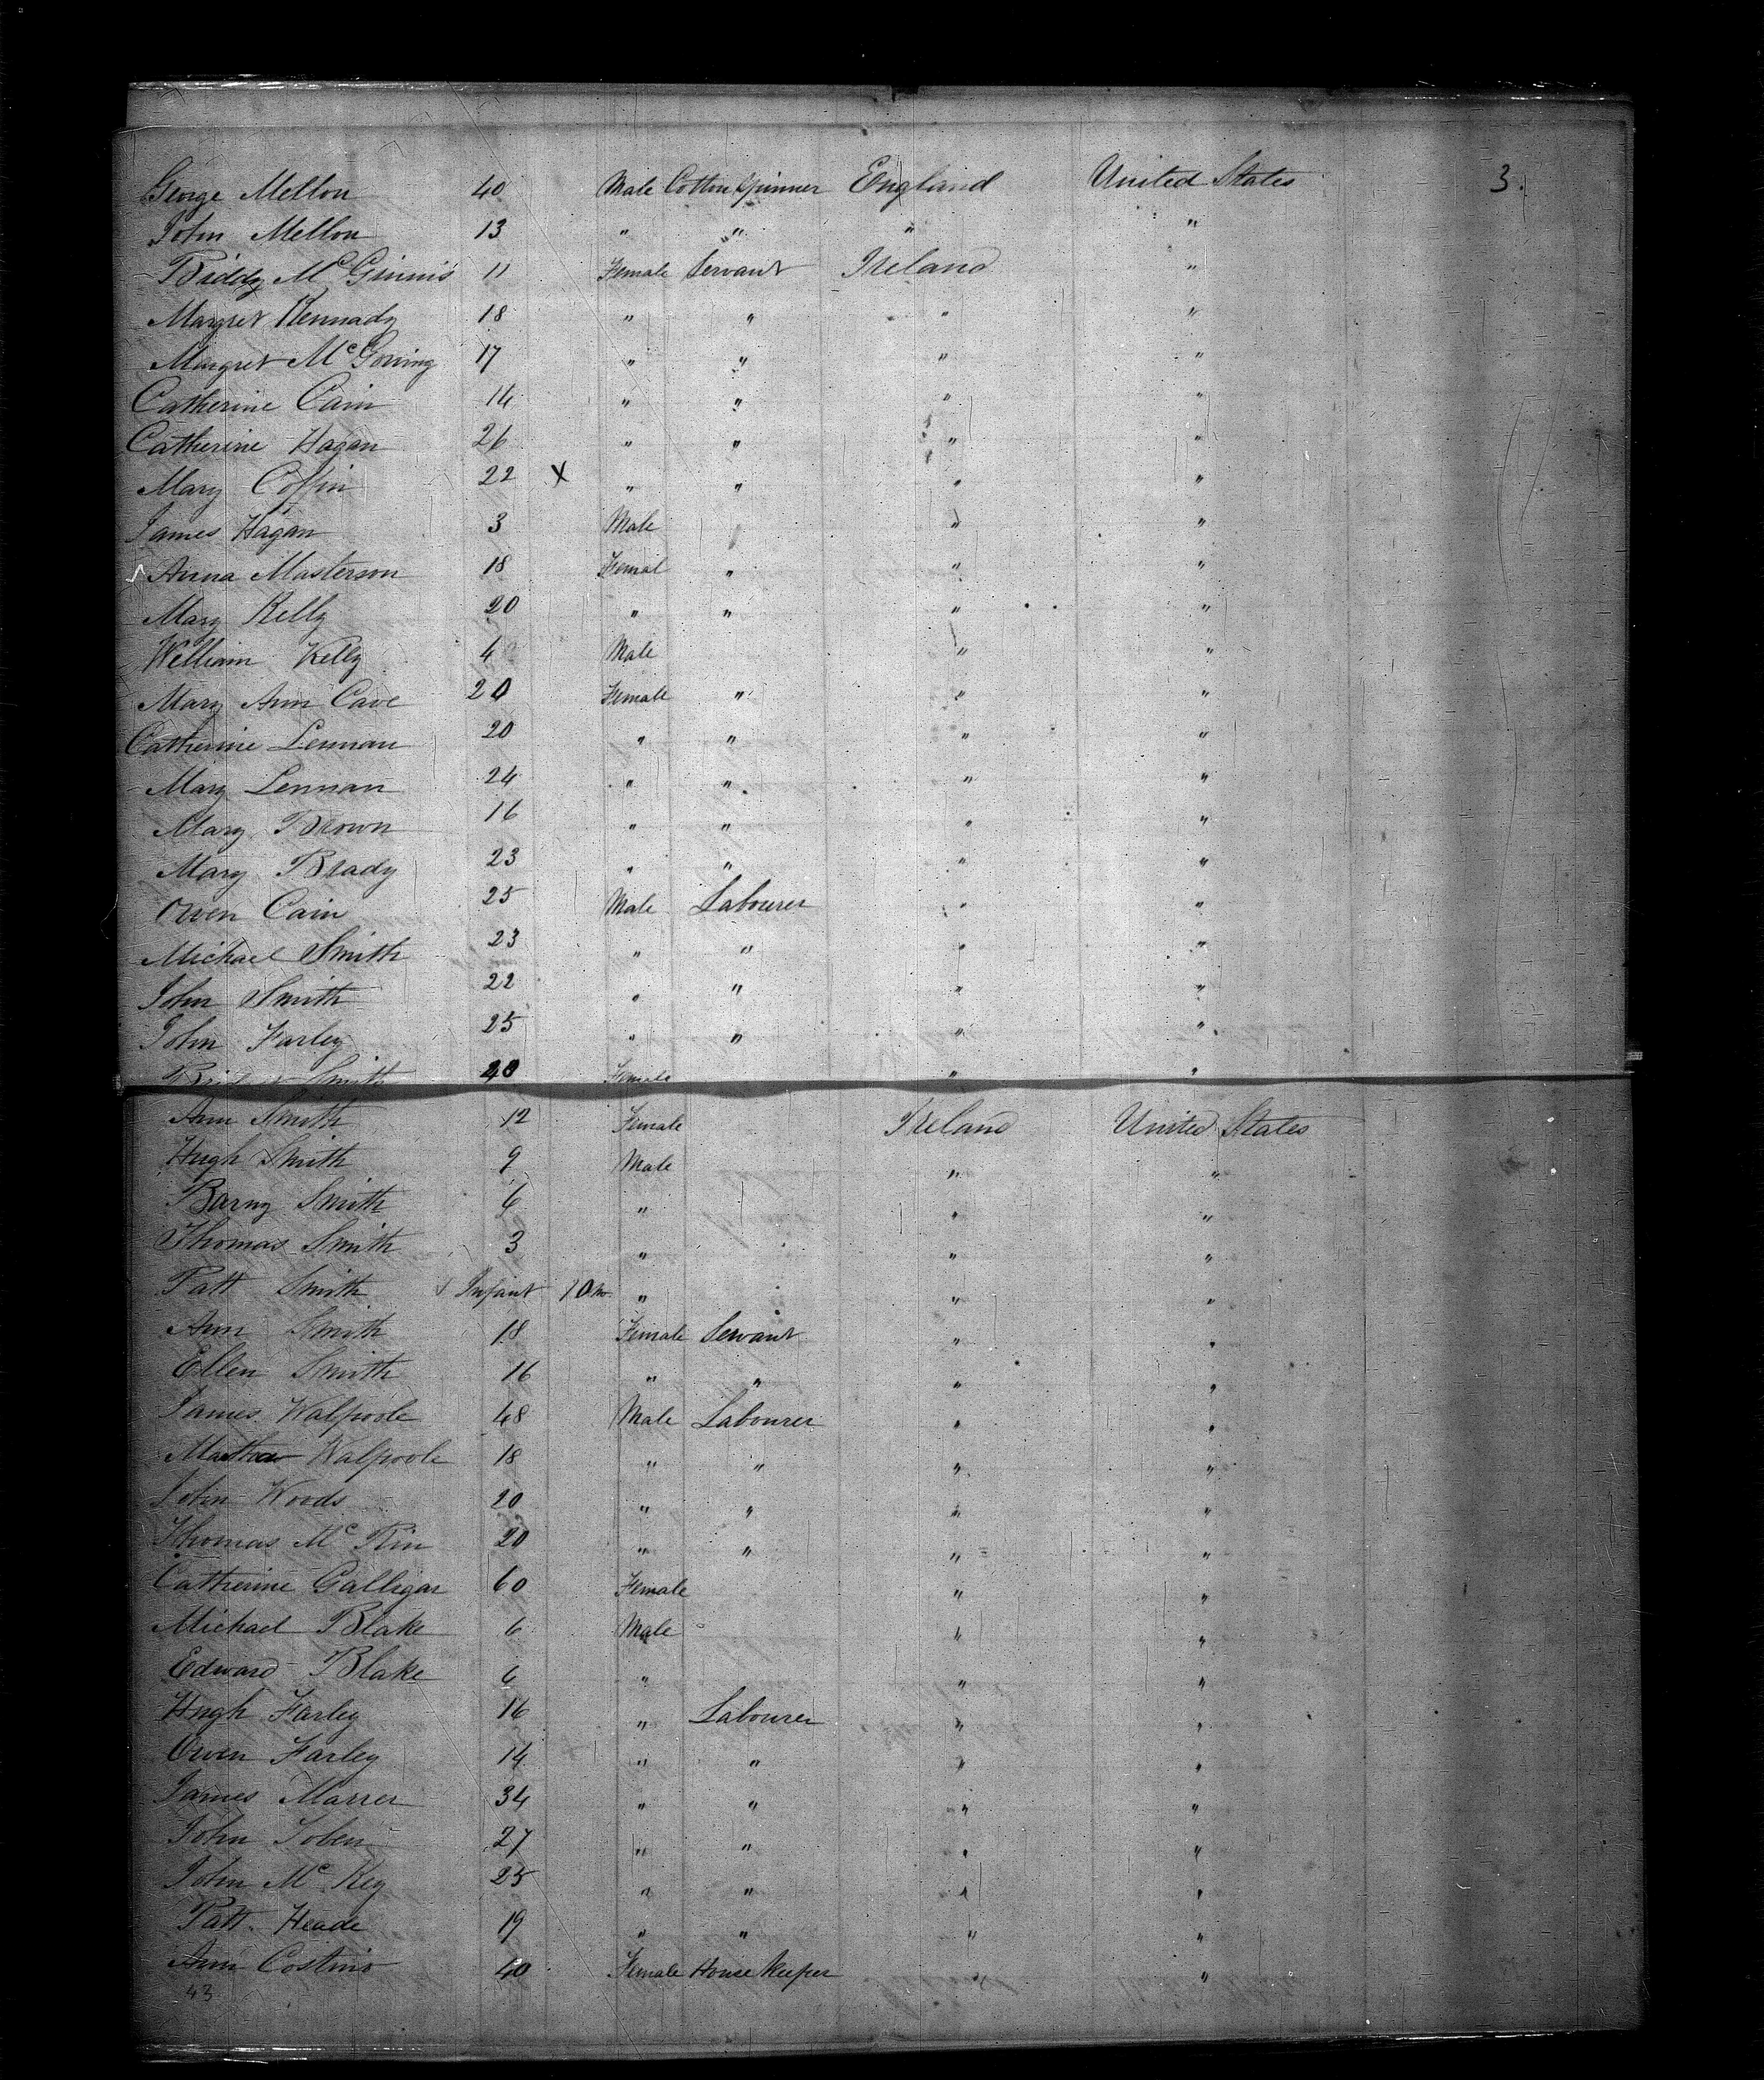 George Mellon 40 Male Cotton Spinner England United States 3.
John Mellon 13 " " " "
Biddy McGinnis 11 Female Servant Ireland "
Margret Kennady 18 " " " "
Margret McGoving 17 " " " "
Catherine Cain 14 " " " "
Catherine Hagan 26 " " " "
Mary Coffin 22 X " " " "
James Hagan 3 Male " "
Anna Masterson 18 Femal " " "
Mary Kelly 20 " " " "
William Kelly 4 Male " "
Mary Ann Cave 20 Female " " "
Catherine Lennan 20 " " " "
Mary Lennan 24 " " " "
Mary Brown 16 " " " "
Mary Brady 23 " " " "
Owen Cain 25 Male Labourer " "
Michael Smith 23 " " " "
John Smith 22 " " " "
John Farley 25 " " " "
Smith 40 Female " "
Ann Smith 12 Female Ireland United States
Hugh Smith 9 Male " "
Barny Smith 6 " " "
Thomas Smith 3 " " "
Patt Smith Infant 10 m. " " "
Ann Smith 18 Female Servant " "
Ellen Smith 16 " " " "
James Walpole 48 Male Labourer " "
Mathew Walpole 18 " " " "
John Woods 20 " " " "
Thomas Mc 20 " " " "
Catherine Galligar 60 Female " "
Michael Blake 6 Male " "
Edward Blake 6 " " "
Hugh Farley 16 " Labourer " "
Owen Farley 14 " " " "
James Marrer 34 " " " "
John Toben 27 " " " "
John McKey 25 " " " "
Patt. Heade 19 " " " "
Ann Costino 40 Female House Keeper "
43